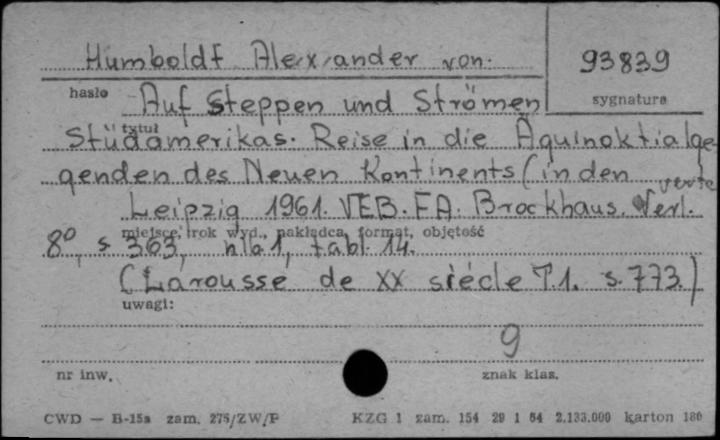 Humboldt Alexander von.
93839
hasło
sygnatura
Auf Steppen und Strömen
tytuł
Stüdamerikas. Reise in die Äquinoktialge
genden des Neuen Kontinents (in den
verte
Leipzig 1961. VEB. F.A. Brockhaus. Verl.
miejsce, rok wyd., nakładca, format, objętość
8°, s. 363, nlb 1, tabl. 14.
(Larousse de XX siècle T.1. s. 773.)
uwagi:
9
nr inw.
znak klas.
CWD — B-15a zam. 275/ZW/P
KZG 1 zam. 154 29 1 64 2.133.000 karton 180